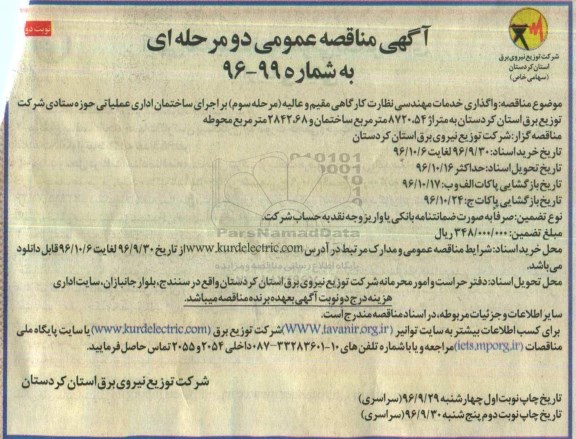 نوبت دوم
آگهی مناقصه عمومی دو مرحله ای
به شماره ۹۹-۹۶
شرکت توزیع نیروی برق
استان کردستان
(سهامی خاص)
موضوع مناقصه: واگذاری خدمات مهندسی نظارت کارگاهی مقیم و عالیه (مرحله سوم) بر اجرای ساختمان اداری عملیاتی حوزه ستادی شرکت
توزیع برق استان کردستان به متراژ ۸۷۲۰.۵۴ متر مربع ساختمان و ۲۸۴۲.۶۸ متر مربع محوطه
مناقصه گزار: شرکت توزیع نیروی برق استان کردستان
تاریخ خرید اسناد: ۹۶/۹/۳۰ لغایت ۹۶/۱۰/۶
تاریخ تحویل اسناد: حداکثر ۹۶/۱۰/۱۶
تاریخ بازگشایی پاکات الف و ب: ۹۶/۱۰/۱۷
تاریخ بازگشایی پاکات ج: ۹۶/۱۰/۲۴
نوع تضمین: صرفاً به صورت ضمانتنامه بانکی یا واریز وجه نقد به حساب شرکت.
مبلغ تضمین: ۳۴۸/۰۰۰/۰۰۰ ریال
محل خرید اسناد: شرایط مناقصه عمومی و مدارک مرتبط در آدرس www.kurdelectric.com از تاریخ ۹۶/۹/۳۰ لغایت ۹۶/۱۰/۶ قابل دانلود
می باشد.
محل تحویل اسناد: دفتر حراست و امور محرمانه شرکت توزیع نیروی برق استان کردستان واقع در سنندج، بلوار جانبازان، سایت اداری
هزینه درج دو نوبت آگهی بعهده برنده مناقصه میباشد.
سایر اطلاعات و جزئیات مربوطه، در اسناد مناقصه مندرج است.
برای کسب اطلاعات بیشتر به سایت توانیر (WWW.tavanir.org.ir) شرکت توزیع برق (www.kurdelectric.com) یا سایت پایگاه ملی
مناقصات (iets.mporg.ir) مراجعه و یا با شماره تلفن های ۱۰-۳۳۲۸۳۶۰۱-۰۸۷ داخلی ۲۰۵۴ و ۲۰۵۵ تماس حاصل فرمایید.
شرکت توزیع نیروی برق استان کردستان
تاریخ چاپ نوبت اول چهارشنبه ۹۶/۹/۲۹ (سراسری)
تاریخ چاپ نوبت دوم پنج شنبه ۹۶/۹/۳۰ (سراسری)
ParsNamadData